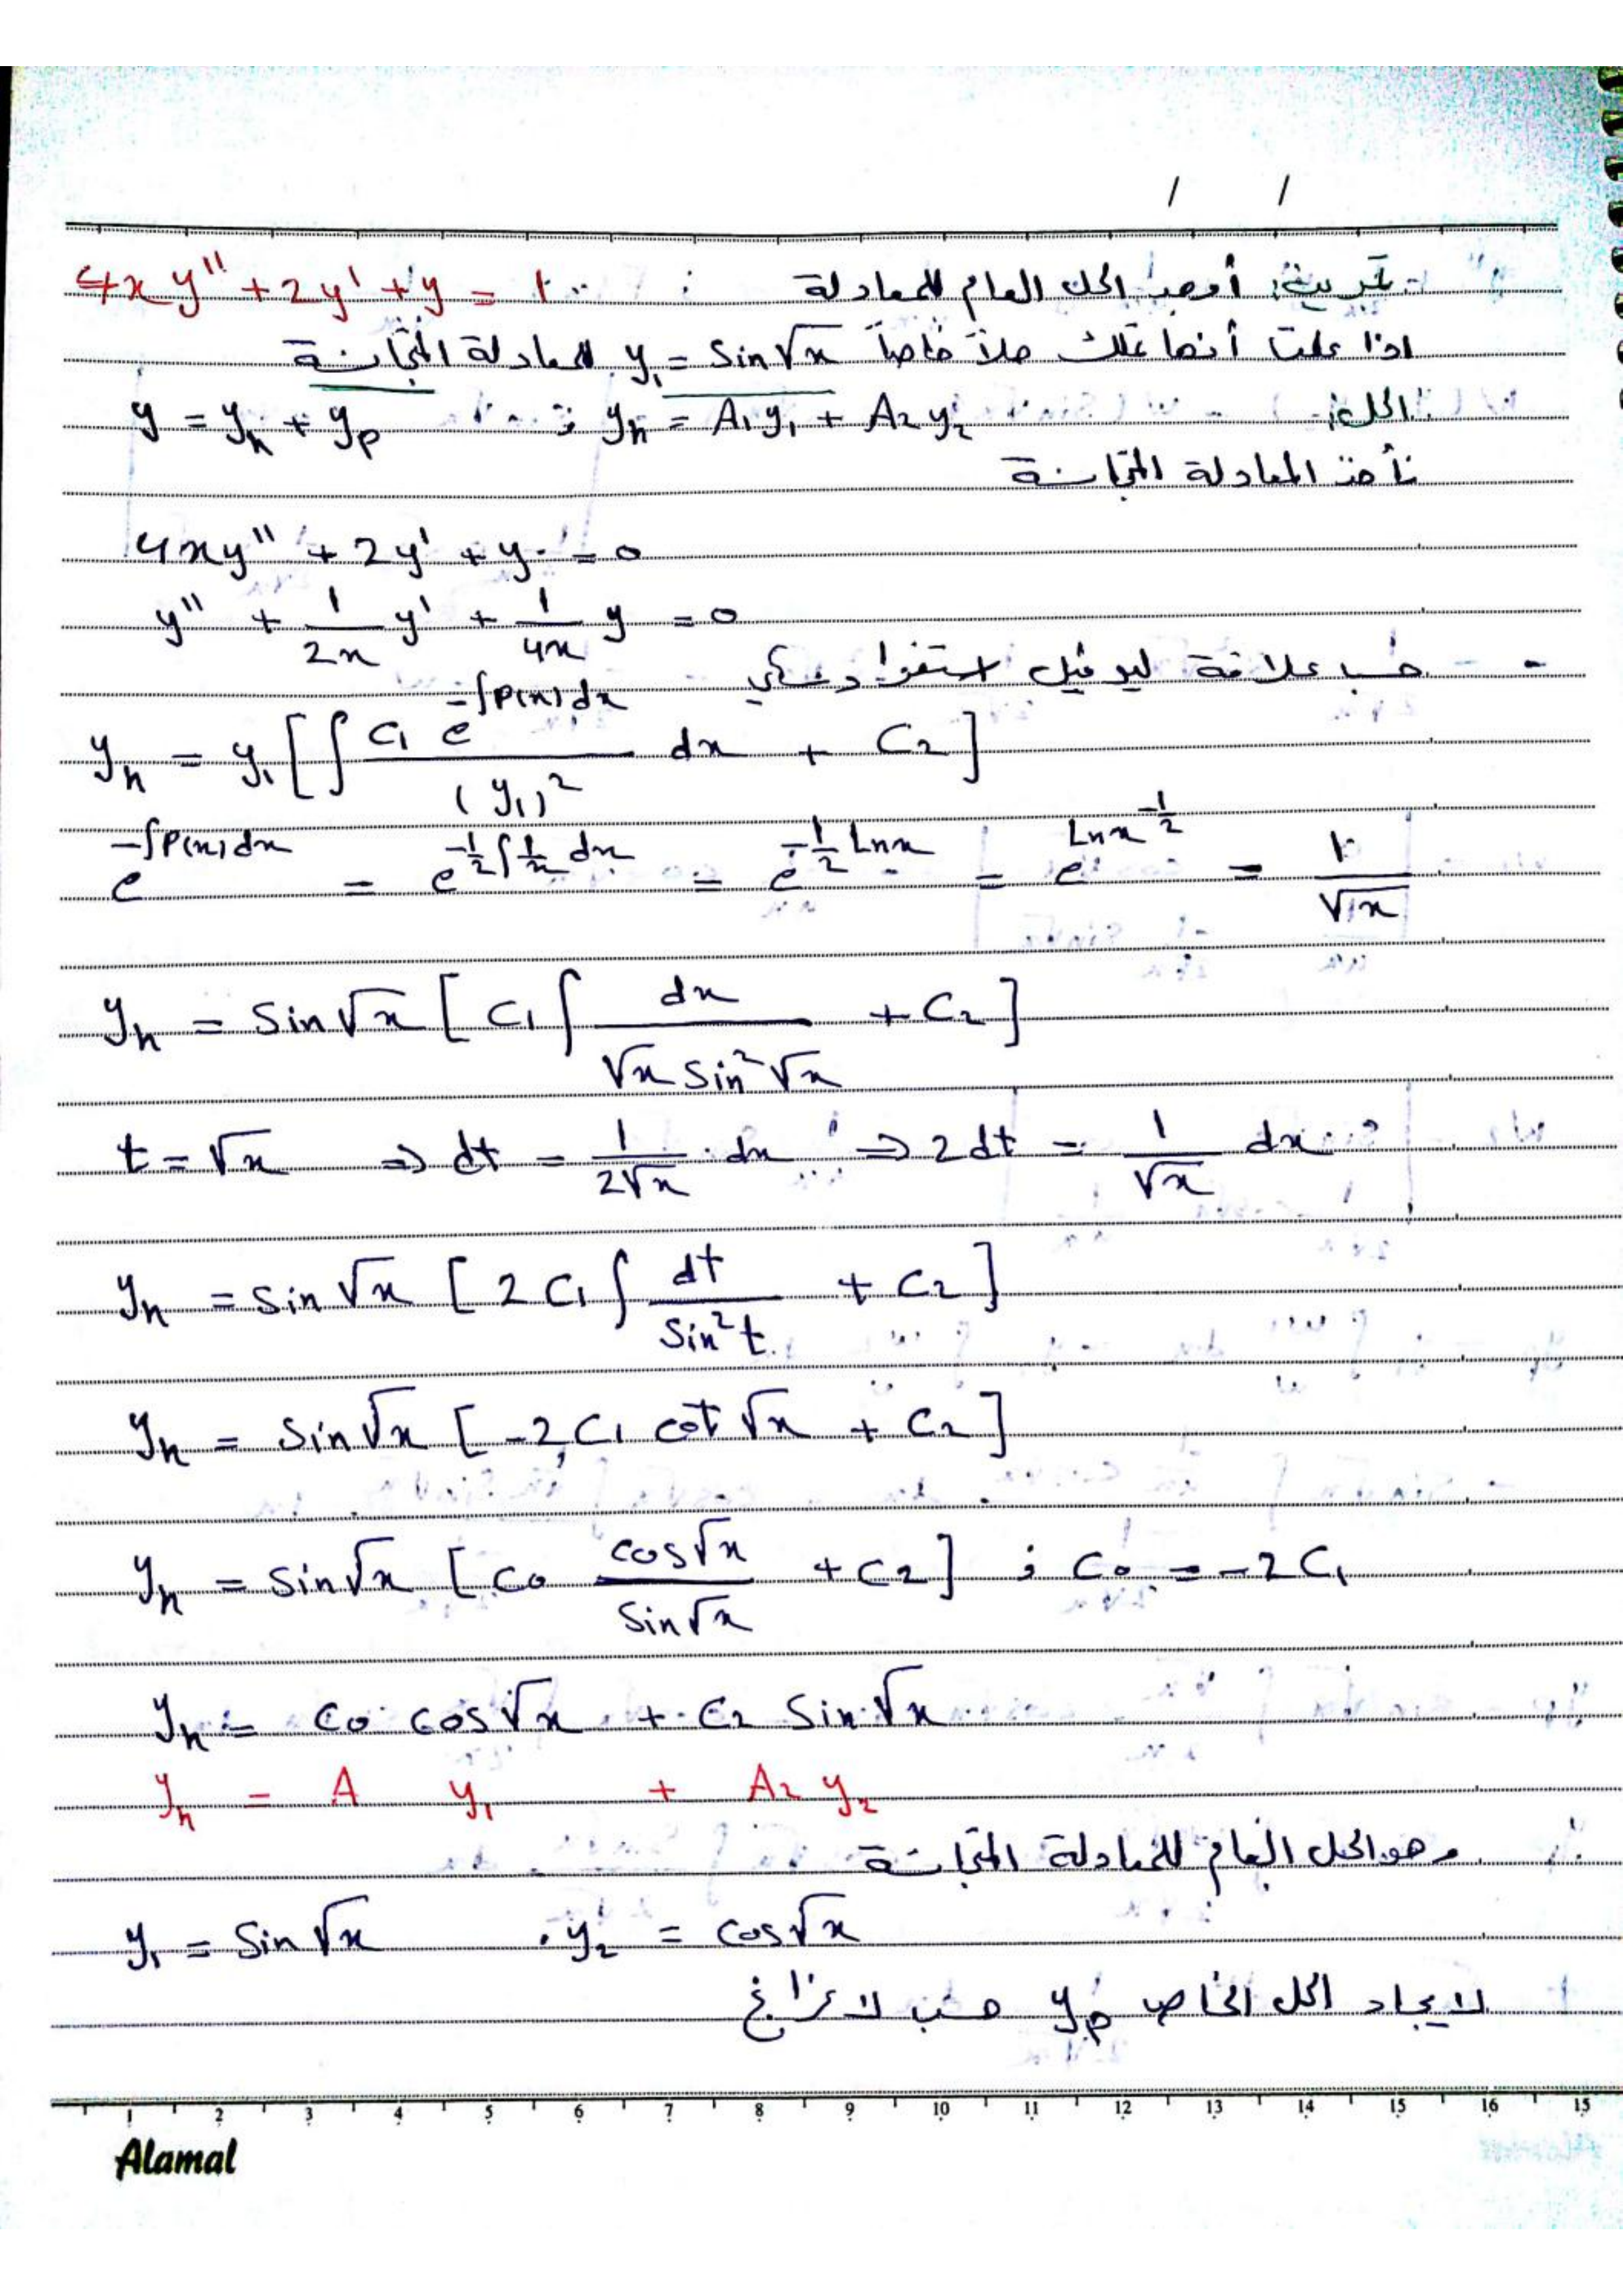 / /
تمرين: أوجد الحل العام للمعادلة : 4xy'' + 2y' + y = 1
اذا علمت أنها تملك حلاً خاصاً y₁ = sin√x للمعادلة المتجانسة
الحل: y = yₕ + yₚ ; yₕ = A₁y₁ + A₂y₂
نأخذ المعادلة المتجانسة
4xy'' + 2y' + y = 0
y'' + 1/2x y' + 1/4x y = 0
حسب علاقة ليوفيل استغرادسكي
yₕ = y₁ [ ∫ C₁ e^(-∫P(x)dx) / (y₁)² dx + C₂ ]
e^(-∫P(x)dx) = e^(-1/2 ∫ 1/x dx) = e^(-1/2 Ln x) = e^(Ln x^(-1/2)) = 1/√x
yₕ = sin√x [ C₁ ∫ dx / (√x sin²√x) + C₂ ]
t = √x ⇒ dt = 1/(2√x) · dx ⇒ 2dt = 1/√x dx
yₕ = sin√x [ 2C₁ ∫ dt / sin²t + C₂ ]
yₕ = sin√x [ -2C₁ cot√x + C₂ ]
yₕ = sin√x [ C₀ cos√x / sin√x + C₂ ] ; C₀ = -2C₁
yₕ = C₀ cos√x + C₂ sin√x
yₕ = A y₁ + A₂ y₂
وهو الحل العام للمعادلة المتجانسة
y₁ = sin√x . y₂ = cos√x
لايجاد الحل الخاص yₚ حسب لاغرانج
1 2 3 4 5 6 7 8 9 10 11 12 13 14 15 16 15
Alamal